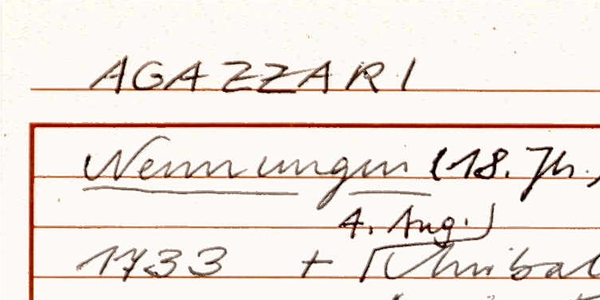 AGAZZARI
Nennungen (18. Jh.)
4. Aug.)
1733 +